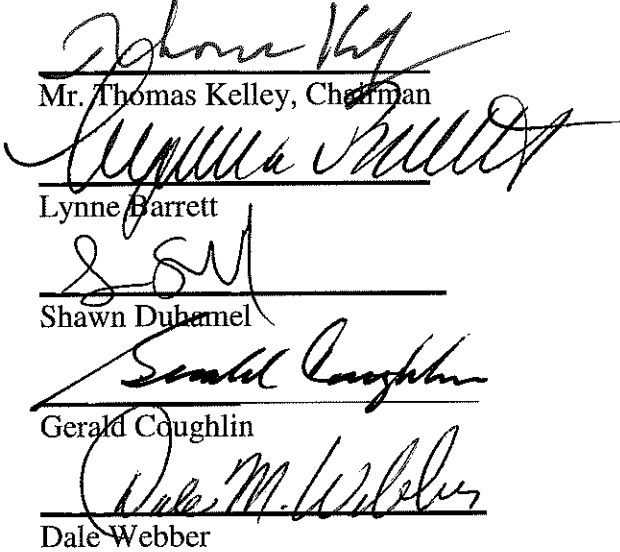 Thomas Kelly
Mr. Thomas Kelley, Chairman
Barrett
Lynne Barrett
Shawn Duhamel
Gerald Coughlin
Gerald Coughlin
Dale M. Webber
Dale Webber